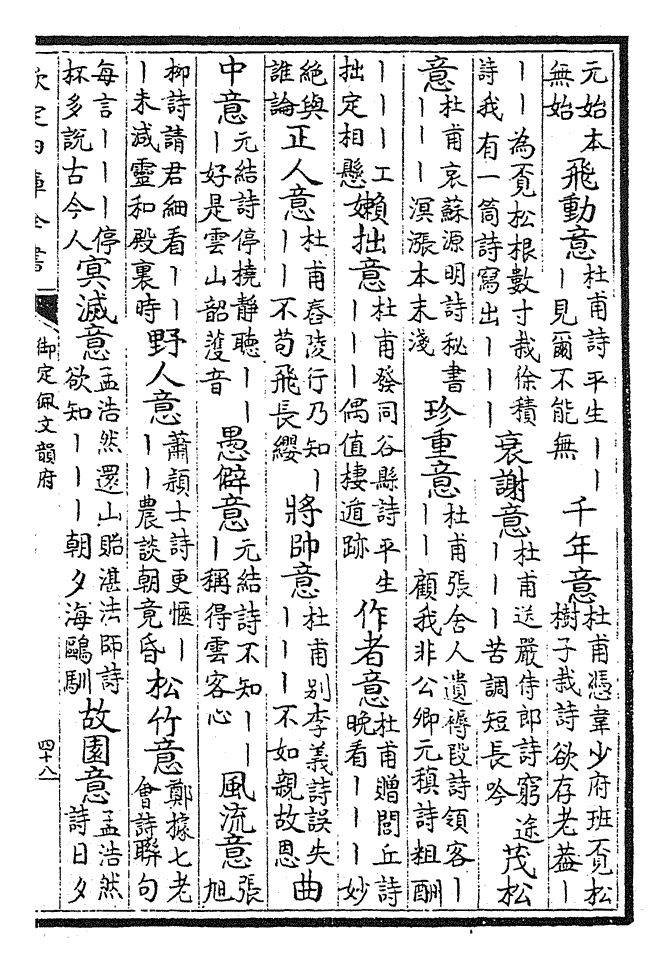 元始本無始飛動意杜甫詩平生｜｜｜見爾不能無千年意杜甫憑韋少府班覓松樹子栽詩欲存老葢｜
｜｜為覓松根數寸栽徐積詩我有一筒詩寫出｜｜｜衰謝意杜甫送嚴侍郎詩窮途｜｜｜苦調短長吟茂松
意杜甫哀蘇源明詩秘書｜｜｜溟漲本末淺珍重意杜甫張舍人遺褥段詩領客｜｜｜顧我非公卿元稹詩粗酬
｜｜｜工拙定相懸嬾拙意杜甫發同谷縣詩平生｜｜｜偶值棲遁跡作者意杜甫贈閭丘詩晚看｜｜｜妙
絶與誰論正人意杜甫舂陵行乃知｜｜｜不苟飛長纓將帥意杜甫别李義詩誤失｜｜｜不如親故恩曲
中意元結詩停橈靜聽｜｜｜好是雲山韶頀音愚僻意元結詩不知｜｜｜稱得雲客心風流意張旭
柳詩請君細看｜｜｜未減靈和殿裏時野人意蕭頴士詩更愜｜｜｜農談朝竟昏松竹意鄭據七老會詩聯句
每言｜｜｜停杯多説古今人㝠滅意孟浩然還山貽湛法師詩欲知｜｜｜朝夕海鷗馴故園意孟浩然詩日夕
欽定四庫全書
御定佩文韻府
四十八